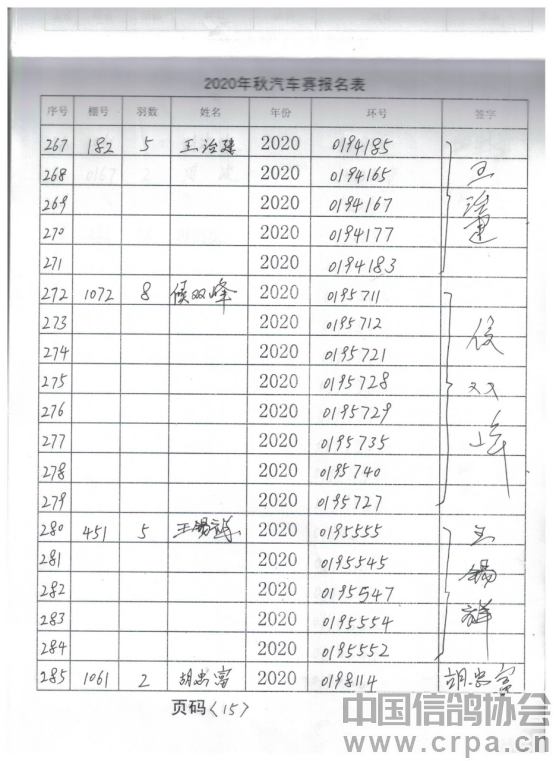 2020年秋汽车赛报名表
序号 棚号 羽数 姓名 年份 环号 签字
267 182 5 王治建 2020 0194185 王治建
268 2020 0194165
269 2020 0194167
270 2020 0194177
271 2020 0194183
272 1072 8 侯双峰 2020 0195711 侯双峰
273 2020 0195712
274 2020 0195721
275 2020 0195728
276 2020 0195729
277 2020 0195735
278 2020 0195740
279 2020 0195727
280 451 5 王锡祥 2020 0195555 王锡祥
281 2020 0195545
282 2020 0195547
283 2020 0195554
284 2020 0195552
285 1061 2 胡忠富 2020 0198114 胡忠富
页码〈15〉
中国信鸽协会
www.crpa.cn